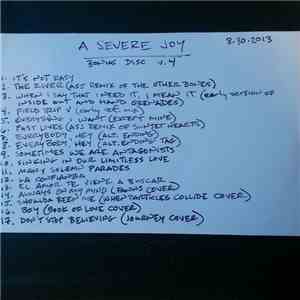 A SEVERE JOY
8-30-2013
BONUS DISC V. 4
1. IT'S NOT EASY
2. THE RIVER (ASJ REMIX OF THE OTHER BONES)
3. WHEN I SAY THAT I NEED IT, I MEAN IT (early version of
INSIDE OUT AND HAND GRENADES)
4. FIELD TRIP V
5. EVERYTHING I WANT (EXCEPT MINE)
6. PAST LIVES (ASJ REMIX OF SUNSET HEARTS)
7. EVERYBODY, HEY (ALT. ENDING)
8. EVERYBODY, HEY (ALT. ENDING TAG)
9. SOMETIMES WE ARE ANTAGONISTS
10. SINKING IN OUR LIMITLESS LOVE
11. MANY SOLEMN PARADES
12. LA CONFIANZA
13. EL AMOR TE VIENE A BUSCAR
14. ALWAYS ON MY MIND (FAMOUS COVER)
15. SHOULDA BEEN ME (WHEN PARTICLES COLLIDE COVER)
16. BOY (BOOK OF LOVE COVER)
17. DON'T STOP BELIEVING (JOURNEY COVER)